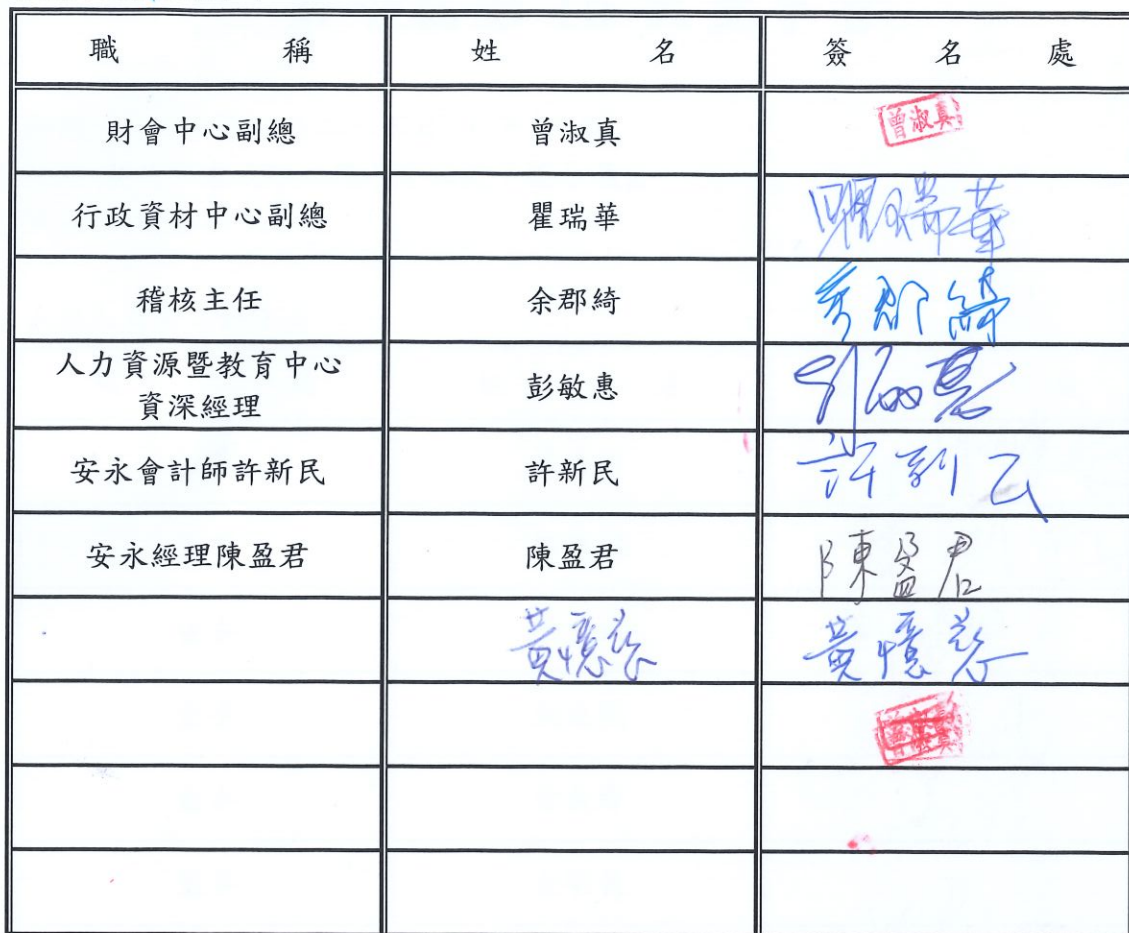 職 稱 姓 名 簽 名 處
財會中心副總 曾淑真 曾淑真
行政資材中心副總 瞿瑞華 瞿瑞華
稽核主任 余郡綺 余郡綺
人力資源暨教育中心
資深經理 彭敏惠 彭敏惠
安永會計師許新民 許新民 許新民
安永經理陳盈君 陳盈君 陳盈君
黃憶慈 黃憶慈